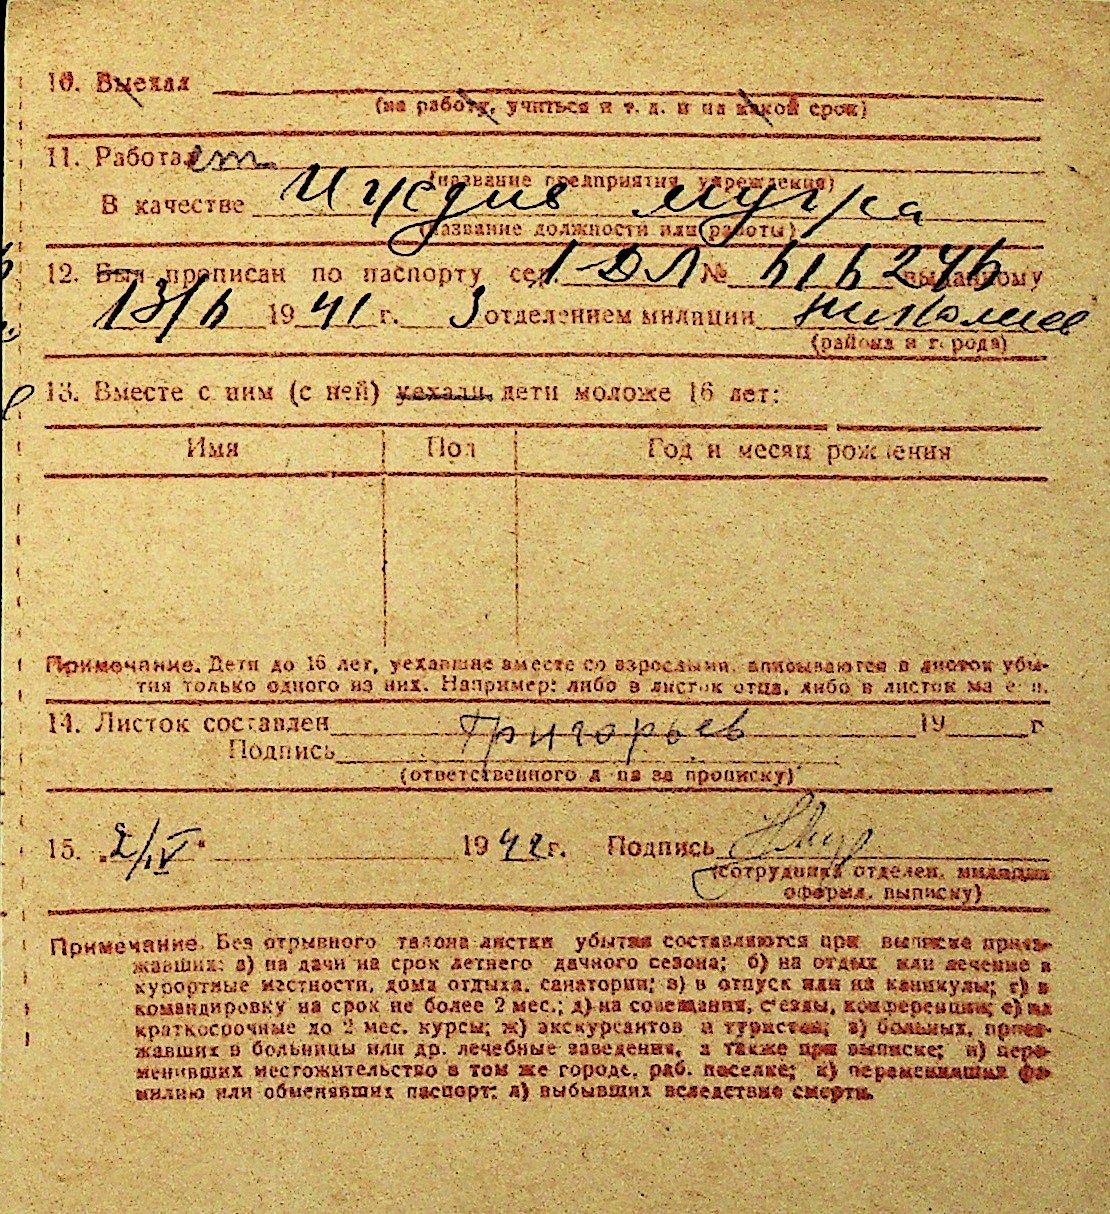 10. Выехал
(на работу, учиться и т. д. и на какой срок)
11. Работает
(название предприятия, учреждения)
В качестве Иждив мужа
(название должности или работы)
12. Был прописан по паспорту сер. I-ДЛ № 616246 выданному
13/6 1941 г. 3 отделением милиции Николаев
(района и города)
13. Вместе с ним (с ней) уехали дети моложе 16 лет:
Имя Пол Год и месяц рождения
Примечание. Дети до 16 лет, уехавшие вместе со взрослыми, вписываются в листок убы-
тия только одного из них. Например: либо в листок отца, либо в листок матери.
14. Листок составлен Григорьев 19 г
Подпись
(ответственного лица за прописку)
15. „2/IV“ 1942 г. Подпись
(сотрудника отделен. милиции
оформл. выписку)
Примечание. Без отрывного талона листки убытия составляются при выписке приез-
жавших: а) на дачи на срок летнего дачного сезона; б) на отдых или лечение в
курортные местности, дома отдыха, санатории; в) в отпуск или на каникулы; г) в
командировку на срок не более 2 мес.; д) на совещания, съезды, конференции; е) на
краткосрочные до 2 мес. курсы; ж) экскурсантов и туристов; з) больных, приез-
жавших в больницы или др. лечебные заведения, а также при выписке; и) пере-
менивших местожительство в том же городе, раб. поселке; к) переменивших фа-
милию или обменявших паспорт; л) выбывших вследствие смерти.